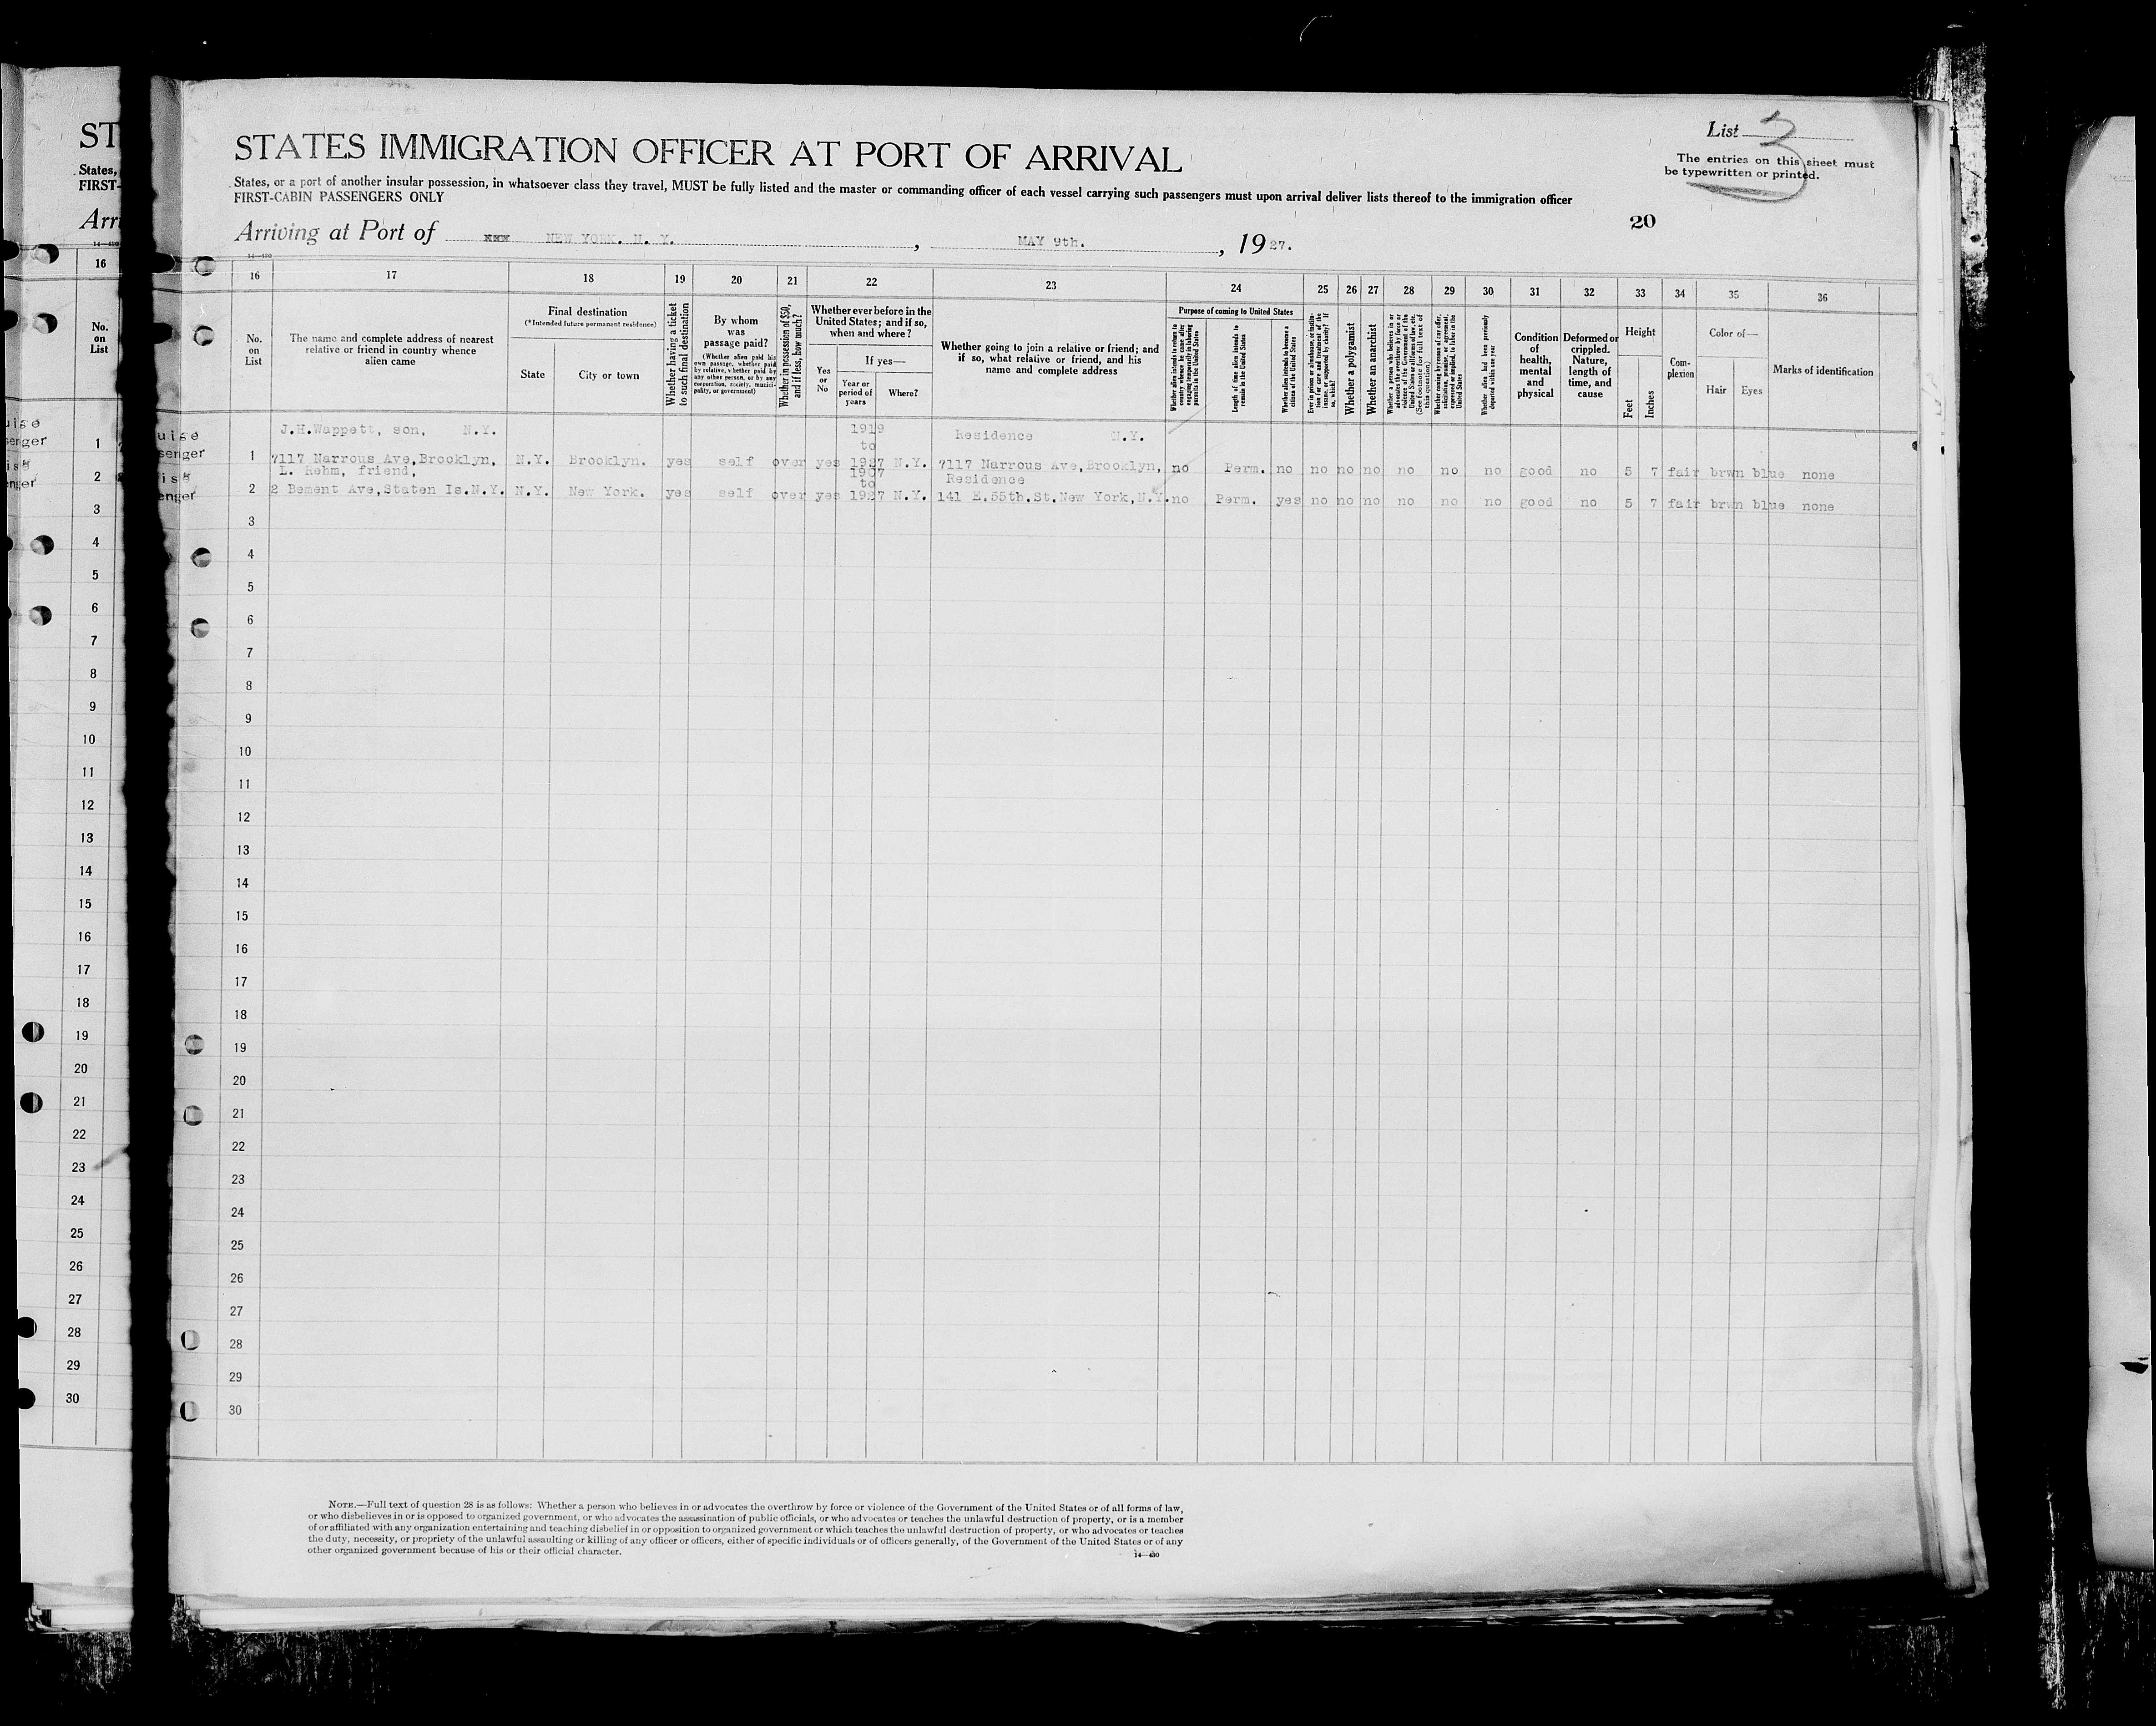 STATES IMMIGRATION OFFICER AT PORT OF ARRIVAL
List 3
The entries on this sheet must
be typewritten or printed.
States, or a port of another insular possession, in whatsoever class they travel, MUST be fully listed and the master or commanding officer of each vessel carrying such passengers must upon arrival deliver lists thereof to the immigration officer
FIRST-CABIN PASSENGERS ONLY
20
Arriving at Port of NEW YORK. N. Y. , MAY 9th. , 1927.
14—430
16 17 18 19 20 21 22 23 24 25 26 27 28 29 30 31 32 33 34 35 36
No. on List
The name and complete address of nearest relative or friend in country whence alien came
Final destination
(*Intended future permanent residence)
State
City or town
Whether having a ticket to such final destination
By whom was passage paid?
(Whether alien paid his own passage, whether paid by relative, whether paid by any other person, or by any corporation, society, municipality, or government)
Whether in possession of $50, and if less, how much?
Whether ever before in the United States; and if so, when and where?
Yes or No
If yes—
Year or period of years
Where?
Whether going to join a relative or friend; and if so, what relative or friend, and his name and complete address
Purpose of coming to United States
Whether alien intends to return to country whence he came after engaging temporarily in laboring pursuits in the United States
Length of time alien intends to remain in the United States
Whether alien intends to become a citizen of the United States
Ever in prison or almshouse, or institution for care and treatment of the insane, or supported by charity? If so, which?
Whether a polygamist
Whether an anarchist
Whether a person who believes in or advocates the overthrow by force or violence of the Government of the United States or all forms of law, etc. (See footnote for full text of this question)
Whether coming by reason of any offer, solicitation, promise, or agreement, expressed or implied, to labor in the United States
Whether alien had been previously deported within one year
Condition of health, mental and physical
Deformed or crippled. Nature, length of time, and cause
Height
Feet
Inches
Complexion
Color of—
Hair
Eyes
Marks of identification
J.H.Wappett, son, N.Y. 1919 Residence N.Y.
to
1 7117 Narrous Ave,Brooklyn, N.Y. Brooklyn. yes self over yes 1927 N.Y. 7117 Narrous Ave,Brooklyn, no Perm. no no no no no no no good no 5 7 fair brwn blue none
L. Rehm, friend, 1907 Residence
to
2 2 Bement Ave,Staten Is.N.Y. N.Y. New York. yes self over yes 1927 N.Y. 141 E.55th.St.New York,N.Y. no Perm. yes no no no no no no good no 5 7 fair brwn blue none
3
4
5
6
7
8
9
10
11
12
13
14
15
16
17
18
19
20
21
22
23
24
25
26
27
28
29
30
NOTE.—Full text of question 28 is as follows: Whether a person who believes in or advocates the overthrow by force or violence of the Government of the United States or of all forms of law,
or who disbelieves in or is opposed to organized government, or who advocates the assassination of public officials, or who advocates or teaches the unlawful destruction of property, or is a member
of or affiliated with any organization entertaining and teaching disbelief in or opposition to organized government or which teaches the unlawful destruction of property, or who advocates or teaches
the duty, necessity, or propriety of the unlawful assaulting or killing of any officer or officers, either of specific individuals or of officers generally, of the Government of the United States or of any
other organized government because of his or their official character.
14—430